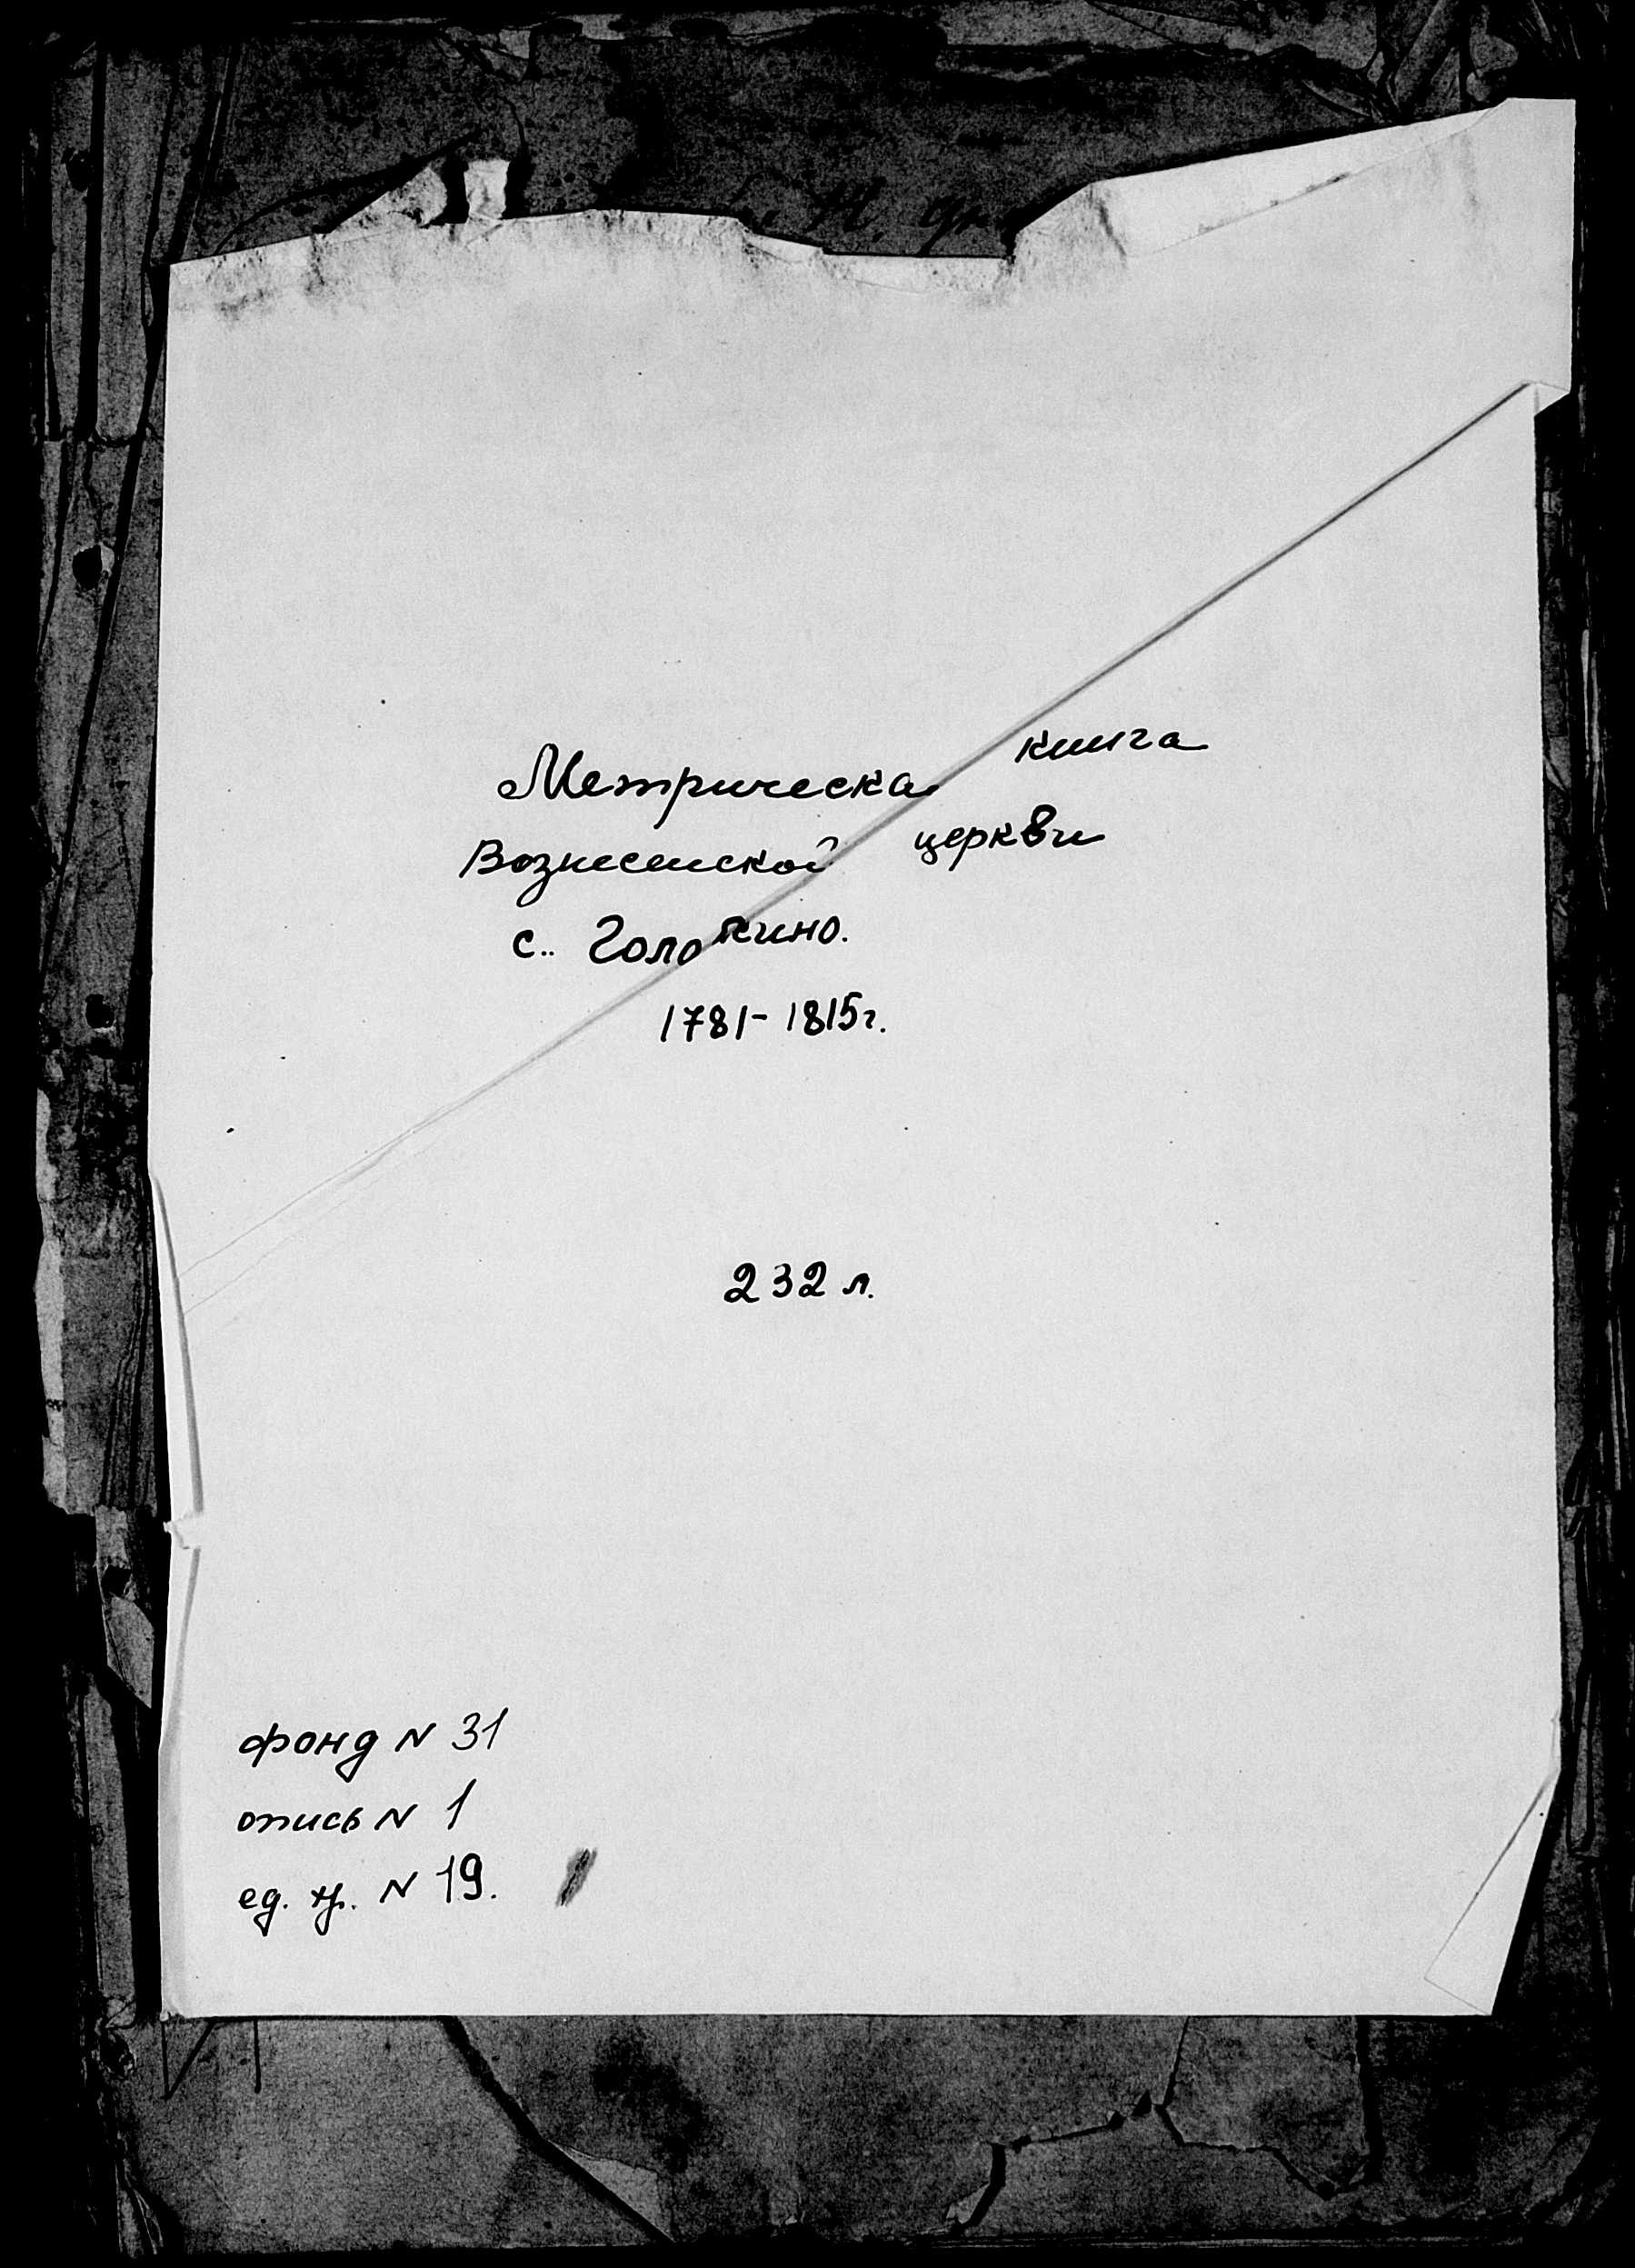 Метрическа книга
Вознесенской церкви
с. Голопкино.
1781-1815г.
232 л.
фонд N 31
опись N 1
ед. хр. N 19.